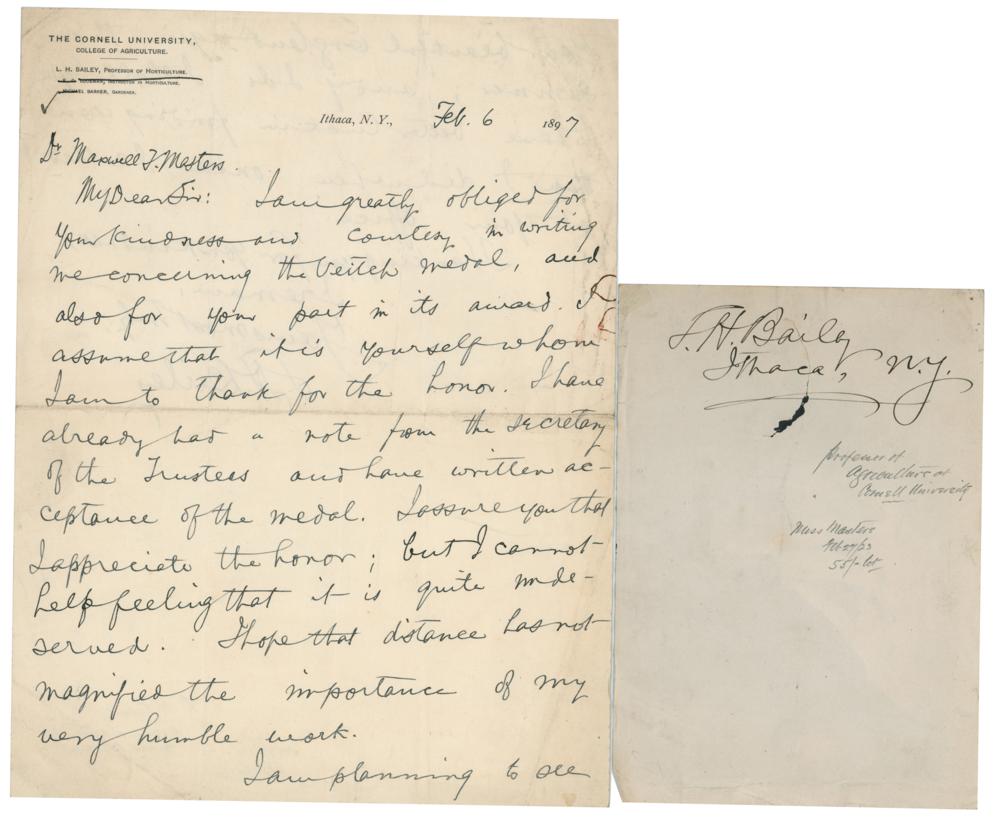 THE CORNELL UNIVERSITY,
COLLEGE OF AGRICULTURE.
L. H. BAILEY, PROFESSOR OF HORTICULTURE.
INSTRUCTOR IN HORTICULTURE.
MICHAEL BARKER, GARDENER.
Ithaca, N. Y., Feb. 6 1897
Dr. Maxwell T. Masters.
My Dear Sir: I am greatly obliged for
your kindness and courtesy in writing
me concerning the Veitch medal, and
also for your part in its award. I
assume that it is yourself whom
I am to thank for the honor. I have
already had a note from the secretary
of the Trustees and have written ac-
ceptance of the medal. I assure you that
I appreciate the honor; but I cannot
help feeling that it is quite unde-
served. I hope that distance has not
magnified the importance of my
very humble work.
I am planning to see
L. H. Bailey
Ithaca, N.Y.
Professor of
Agriculture at
Cornell University
Miss Masters
Feb 27/23
55/- lot